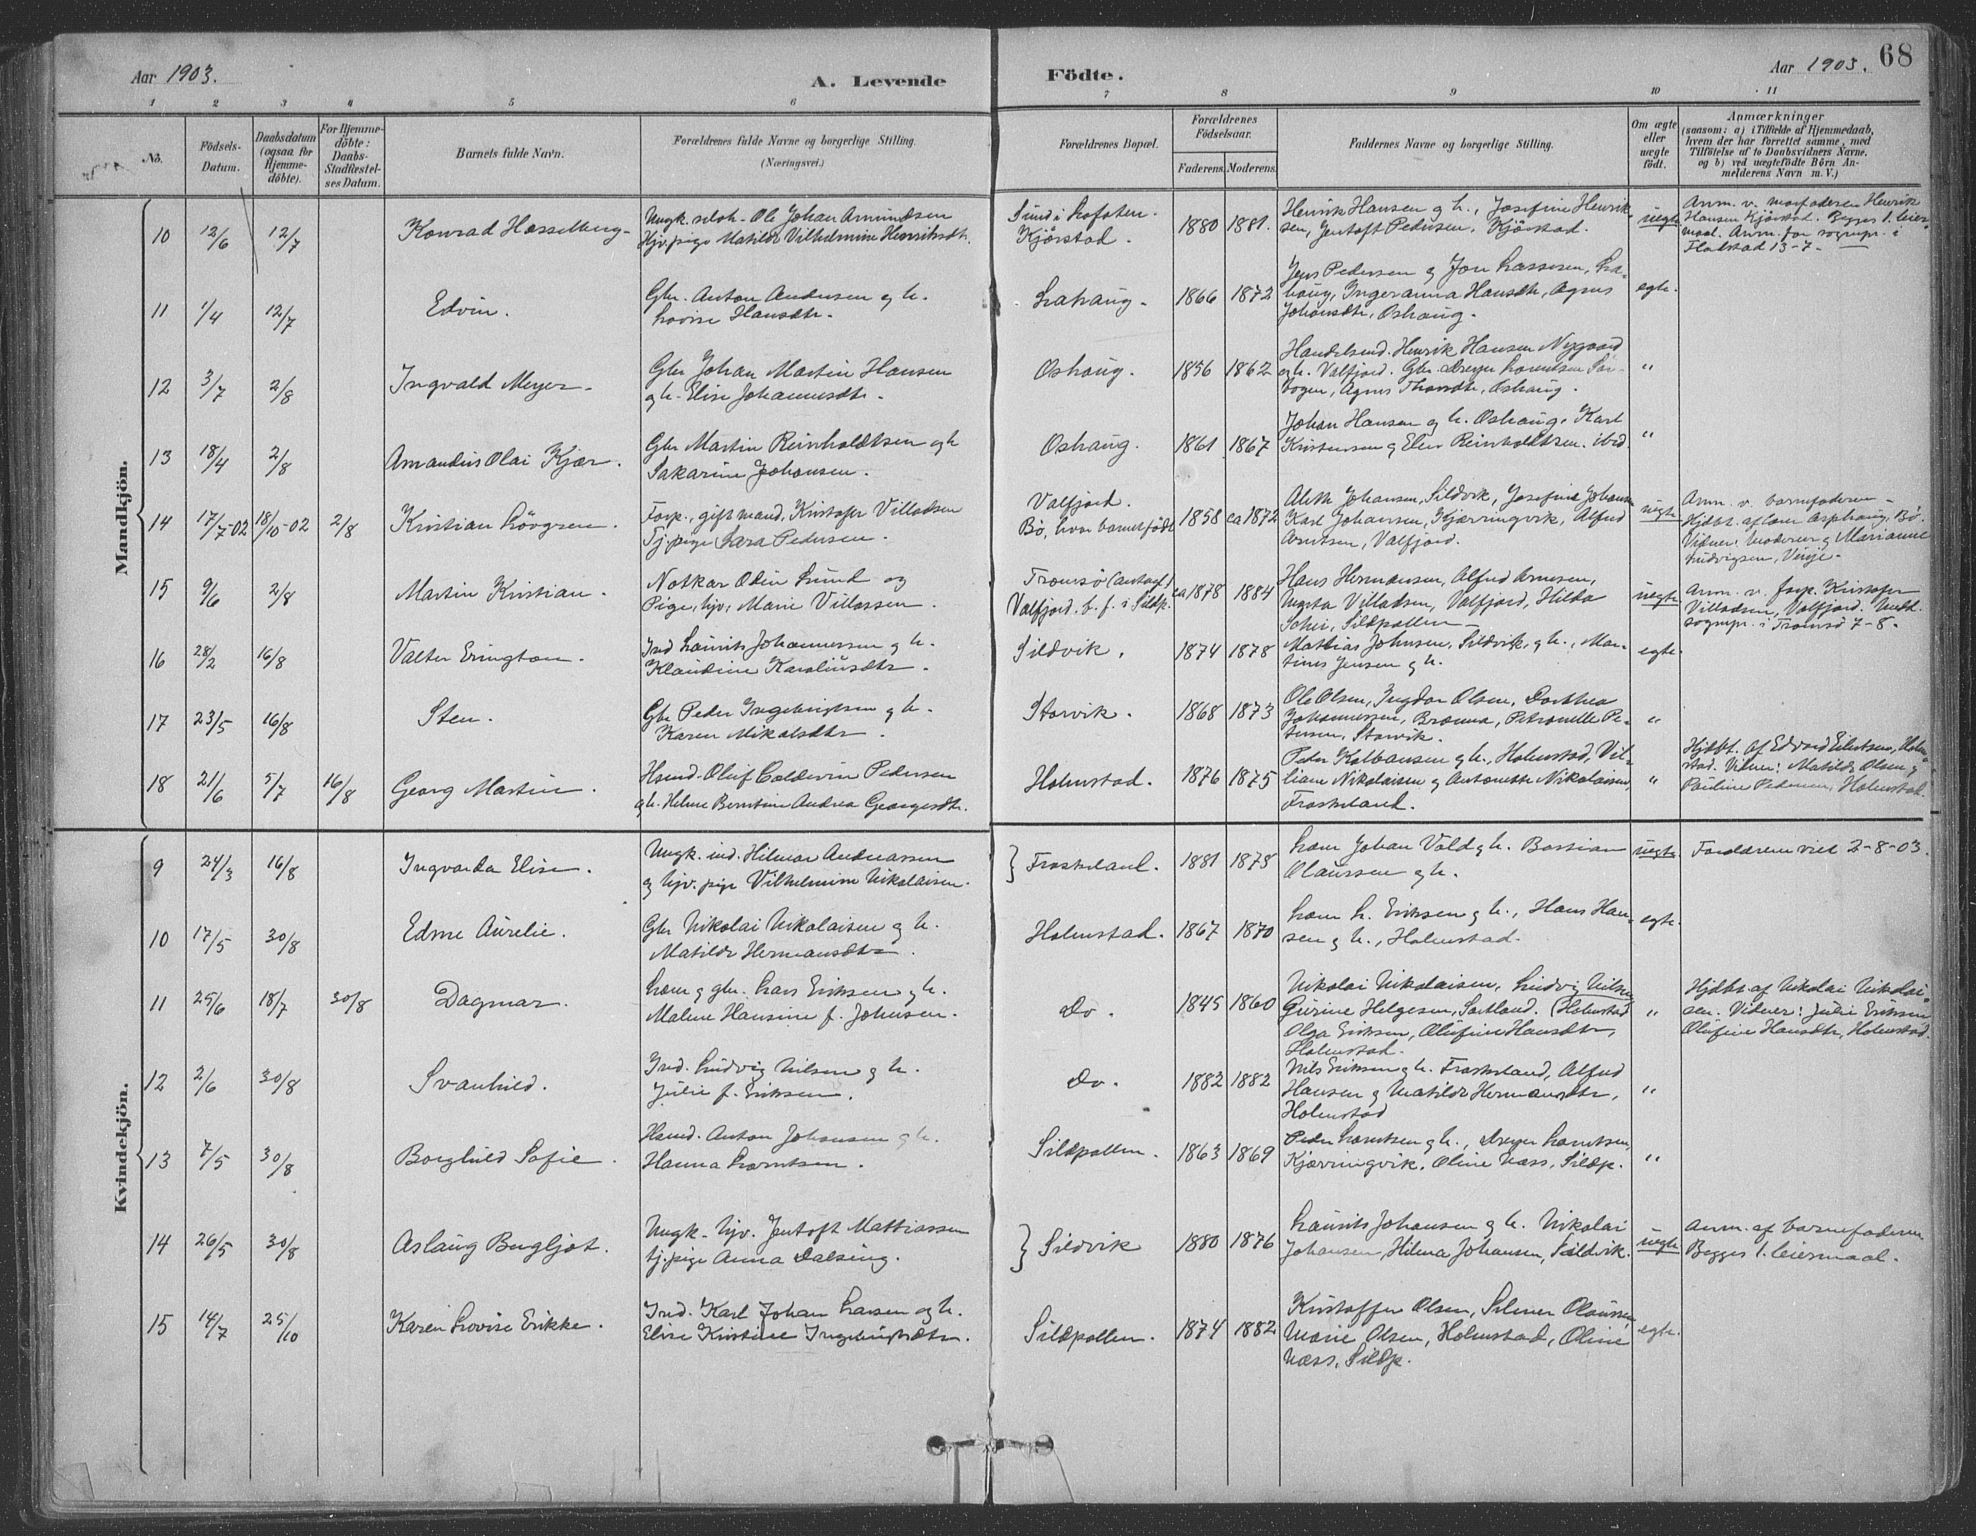 Aar 1903.
A. Levende
Födte.
Aar 1903.
68
1 2 3 4 5 6 7 8 9 10 11
No.
Födsels-
Datum.
Daabsdatum
(ogsaa for
Hjemme-
döbte).
For Hjemme-
döbte:
Daabs-
Stadfæstel-
ses Datum.
Barnets fulde Navn.
Forældrenes fulde Navne og borgerlige Stilling.
(Næringsvei.)
Forældrenes Bopæl.
Forældrenes
Födselsaar.
Faderens. Moderens.
Faddernes Navne og borgerlige Stilling.
Om ægte
eller
uægte
födt.
Anmærkninger
(saasom: a) i Tilfælde af Hjemmedaab,
hvem der har forrettet samme, med
Tilföielse af to Daabsvidners Navne.
og b) ved uægtefödte Börn An-
melderens Navn m. V.)
Mandkjön.
10 12/6 12/7 Konrad Hasselberg
Ungk. seloh. Ole Johan Amundsen
Hjv. pige Matilde Vilhelmine Henriksdtr.
Sund i Lofoten.
Kjörstad.
1880 1881.
Henrik Hansen og h., Josefine Henrik-
sen, Jentoft Pedersen, Kjörstad.
uegte
Anm. v. morfaderen Henrik
Hansen Kjörstad. Begges 1. leier-
maal. Anm. for sognepr. i
Flakstad 13-7.
11 1/4 12/7 Edvin.
Gbr. Anton Andersen og h.
Lovise Hansdtr.
Lahaug. 1866 1872
Jens Pedersen og Jon Lassesen, La-
haug, Ingeranna Hansdtr, Agnes
Johansdtr, Oshaug.
egte.
12 3/7 2/8 Ingvald Meyer.
Gbr Johan Martin Hansen
og h. Elise Johannesdtr.
Oshaug. 1856 1862
Handelsmd. Henrik Hansen Nygaard
og h. Valfjord. Gbr. Dreyer Lorentsen Sör-
vogen, Agnes Thorsdtr, Oshaug.
"
13 18/4 2/8 Amandus Olai Kjær.
Gbr Martin Reinholdtsen og h
Sakarine Johansen.
Oshaug. 1861 1867
Johan Hansen og h. Oshaug. Karl
Kristensen og Elen Reinholdtsen. ibid.
"
14 17/7-02 18/10-02 2/8 Kristian Lövgren.
Forp., gift mand, Kristofer Villadsen
Tj. pige Sara Pedersen.
Valfjord.
Bö, hvor barnet födt
1858 ca 1872
Aleth Johansen, Sildvik, Josefine Johansen
Karl Johansen, Kjærringvik, Alfred
Arntsen, Valfjord.
uegte
Anm. v. barnefaderen
Hjdbt. af Lars Asphaug. Bö.
Vidner: Moderen og Marianne
Ludvigsen, Vinje.
15 9/6 2/8 Martin Kristian.
Notkar Odin Lund og
Pige, hjv. Marie Villassen.
Tromsö (antagl.)
Valfjord. b. f. i Sildp.
ca 1878 1884
Hans Hermansen, Alfred Arntsen,
Marta Villadsen, Valfjord, Hilda
Sildpollen
uegte
Anm. v. forp. Kristofer
Villadsen, Valfjord. Medd.
sognepr. i Tromsö 7-8.
16 28/2 16/8 Valter Erington.
Ind Laurits Johannessen og h.
Klaudine Karoliusdtr.
Sildvik. 1874 1878
Mattias Johnsen, Sildvik, og h., Mar-
tines Jensen og h.
egte.
17 23/5 16/8 Sten.
Gbr Peder Ingebrigtsen og h.
Karen Mikalsdtr.
Storvik. 1868 1873
Ole Olsen, Ingdor Olsen, Dorthea
Johannessen, Brenna, Petronelle Pe-
tersen, Storvik.
"
18 21/6 5/7 16/8 Georg Martin.
Husmd. Oluf Coldevin Pedersen
og h. Helene Berntine Andrea Georgesdtr.
Holmstad. 1876 1875
Peder Kolbansen og h., Holmstad, Vil-
liam Nikolaisen og Antonette Nikolaisen,
Frøskeland.
"
Hjdbt. af Edvard Eilertsen, Holm-
stad. Vidner: Matilde Olsen og
Pauline Pedersen, Holmstad.
Kvindekjön.
9 24/3 16/8 Ingvarda Elise.
Ungk. ind. Hilmar Andreassen
og hjv. pige Vilhelmine Nikolaisen.
Froskeland. 1881 1878
Lærer Johan Vold og h. Bastian
Olaussen og h.
uegte
Forældrene viet 2-8-03.
10 17/5 30/8 Edme Aurelie.
Gbr Nikolai Nikolaisen og h.
Matilde Hermansdtr
Holmstad. 1867 1870
Lærer L. Eriksen og h., Hans Han-
sen og h., Holmstad.
egte.
11 25/6 18/7 30/8 Dagmar.
Lærer og gbr. Lars Eriksen og h.
Malene Hansine f. Johnsen.
do. 1845 1860
Nikolai Nikolaisen, Ludvig Nilsen
Gurine Helgesen, Sortland. (Holmstad
Olga Eriksen, Olufine Hansdtr,
Holmstad.
"
Hjdbt af Nikolai Nikolai-
sen. Vidner: Julie Eriksen
Olufine Hansdtr, Holmstad.
12 2/6 30/8 Svanhild.
Ind. Ludvig Nilsen og h.
Julie f. Eriksen.
do. 1882 1882
Nils Eriksen og h. Froskeland, Alfred
Hansen og Matilde Hermansdtr,
Holmstad
"
13 7/5 30/8 Borghild Sofie.
Husmd. Anton Johansen og h.
Hanna Lorntsen.
Sildpollen. 1863 1869
Peder Lorntsen og h., Dreyer Lorntsen,
Kjærringvik, Oline Næss, Sildp.
"
14 26/5 30/8 Aslaug Bergljot.
Ungk. hjv. Jentoft Mattiassen
tj. pige Anna Dalsing.
Sildvik 1880 1876
Laurits Johansen og h. Nikolai
Johansen, Hilma Johansen, Sildvik.
uegte
Anm. af barnefaderen
Begges 1. leiermaal.
15 14/7 25/10 Karen Lovise Erikke.
Ind. Karl Johan Larsen og h.
Elise Kristine Ingebrigtsdtr.
Sildpollen. 1874 1882
Kristoffer Olsen, Selmer Olaussen
Marie Olsen, Holmstad, Oline
Næss, Sildp.
egte.